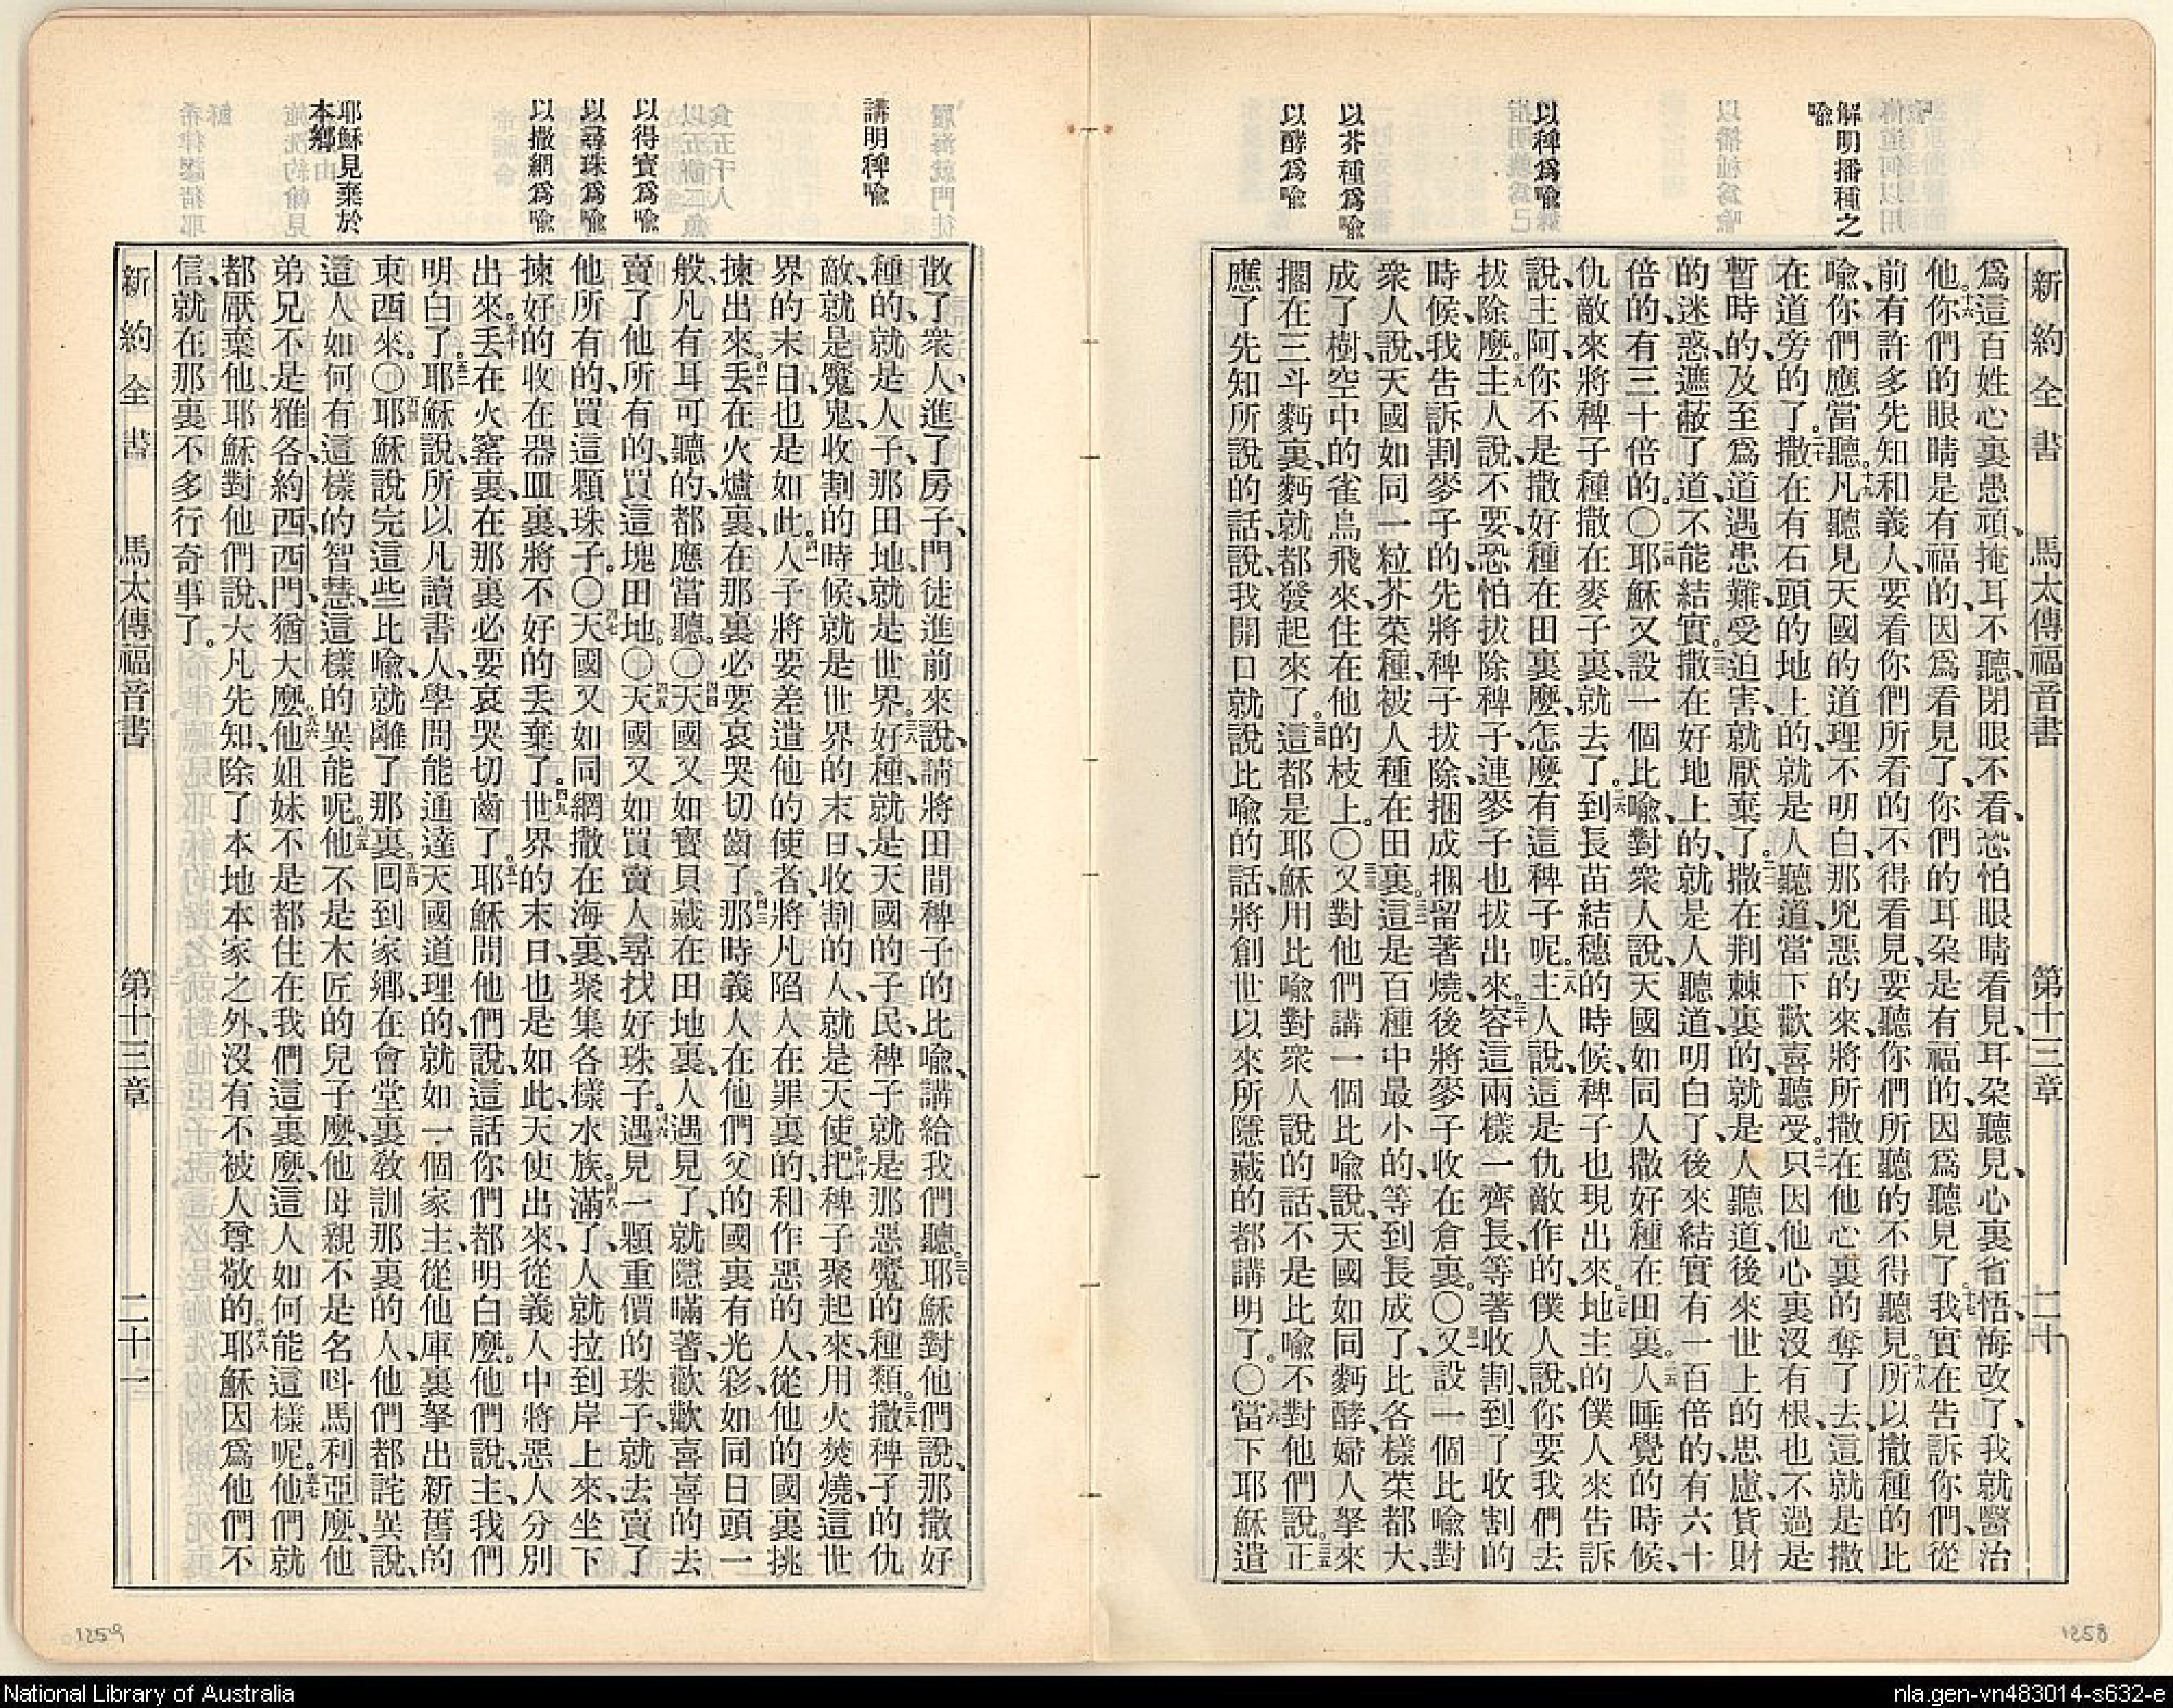 解明播種之
喻
以稗爲喻
以芥種爲喻
以酵爲喻
新約全書 馬太傳福音書 第十三章 二十
爲這百姓心裏愚頑、掩耳不聽、閉眼不看、恐怕眼睛看見、耳朶聽見、心裏省悟、悔改了、我就醫治
他。十六你們的眼睛是有福的、因爲看見了、你們的耳朶是有福的、因爲聽見了。十七我實在告訴你們、從
前有許多先知和義人、要看你們所看的、不得看見、要聽你們所聽的、不得聽見。十八所以撒種的比
喻、你們應當聽。十九凡聽見天國的道理不明白、那兇惡的來、將所撒在他心裏的奪了去、這就是撒
在道旁的了。二十撒在有石頭的地上的、就是人聽道、當下歡喜聽受。二一只因他心裏沒有根、也不過是
暫時的、及至爲道遇患難、受迫害、就厭棄了。二二撒在荆棘裏的、就是人聽道、後來世上的思慮、貨財
的迷惑、遮蔽了道、不能結實。二三撒在好地上的、就是人聽道明白了、後來結實、有一百倍的、有六十
倍的、有三十倍的。〇二四耶穌又設一個比喻、對衆人說、天國如同人撒好種在田裏。二五人睡覺的時候、
仇敵來將稗子種撒在麥子裏、就去了。二六到長苗結穗的時候、稗子也現出來。二七地主的僕人來告訴
說、主阿、你不是撒好種在田裏麽、怎麽有這稗子呢。二八主人說、這是仇敵作的、僕人說、你要我們去
拔除麽。二九主人說、不要、恐怕拔除稗子、連麥子也拔出來。三十容這兩樣一齊長、等著收割、到了收割的
時候、我告訴割麥子的、先將稗子拔除、捆成捆、留著燒、後將麥子收在倉裏。〇三一又設一個比喻、對
衆人說、天國如同一粒芥菜種、被人種在田裏。三二這是百種中最小的、等到長成了、比各樣菜都大、
成了樹、空中的雀鳥飛來、住在他的枝上。〇三三又對他們講一個比喻說、天國如同麪酵、婦人拏來
擱在三斗麪裏、麪就都發起來了。三四這都是耶穌用比喻對衆人說的話、不是比喻、不對他們說。三五正
應了先知所說的話、說、我開口就說比喻的話、將創世以來所隱藏的都講明了。〇三六當下耶穌遣
1258
講明稗喻
以得寶爲喻
以尋珠爲喻
以撒網爲喻
耶穌見棄於
本鄉
散了衆人、進了房子、門徒進前來說、請將田間稗子的比喻、講給我們聽。三七耶穌對他們說、那撒好
種的、就是人子、那田地、就是世界。三八好種、就是天國的子民、稗子、就是那惡魔的種類。三九撒稗子的仇
敵、就是魔鬼、收割的時候、就是世界的末日、收割的人、就是天使。四十把稗子聚起來、用火焚燒、這世
界的末日、也是如此。四一人子將要差遣他的使者、將凡陷人在罪裏的、和作惡的人、從他的國裏挑
揀出來。四二丟在火爐裏、在那裏必要哀哭切齒了。四三那時義人在他們父的國裏有光彩、如同日頭一
般、凡有耳可聽的、都應當聽。〇四四天國又如寶貝藏在田地裏、人遇見了、就隱瞞著、歡歡喜喜的去
賣了他所有的、買這塊田地。〇四五天國又如買賣人尋找好珠子。四六遇見一顆重價的珠子、就去賣了
他所有的、買這顆珠子。〇四七天國又如同網撒在海裏、聚集各樣水族。四八滿了、人就拉到岸上來、坐下
揀好的收在器皿裏、將不好的丟棄了。四九世界的末日、也是如此、天使出來、從義人中將惡人分別
出來。五十丟在火窰裏、在那裏必要哀哭切齒了。五一耶穌問他們說、這話你們都明白麽。他們說、主、我們
明白了。五二耶穌說、所以凡讀書人、學問能通達天國道理的、就如一個家主、從他庫裏拏出新舊的
東西來。〇五三耶穌說完這些比喻、就離了那裏。五四囘到家鄉、在會堂裏敎訓那裏的人、他們都詫異說、
這人如何有這樣的智慧、這樣的異能呢。五五他不是木匠的兒子麽、他母親不是名呌馬利亞麽、他
弟兄不是雅各、約西、西門、猶大麽。五六他姐妹不是都住在我們這裏麽、這人如何能這樣呢。五七他們就
都厭棄他、耶穌對他們說、大凡先知、除了本地本家之外、沒有不被人尊敬的。五八耶穌因爲他們不
信、就在那裏不多行奇事了。
新約全書 馬太傳福音書 第十三章 二十一
1259
National Library of Australia
nla.gen-vn483014-s632-e